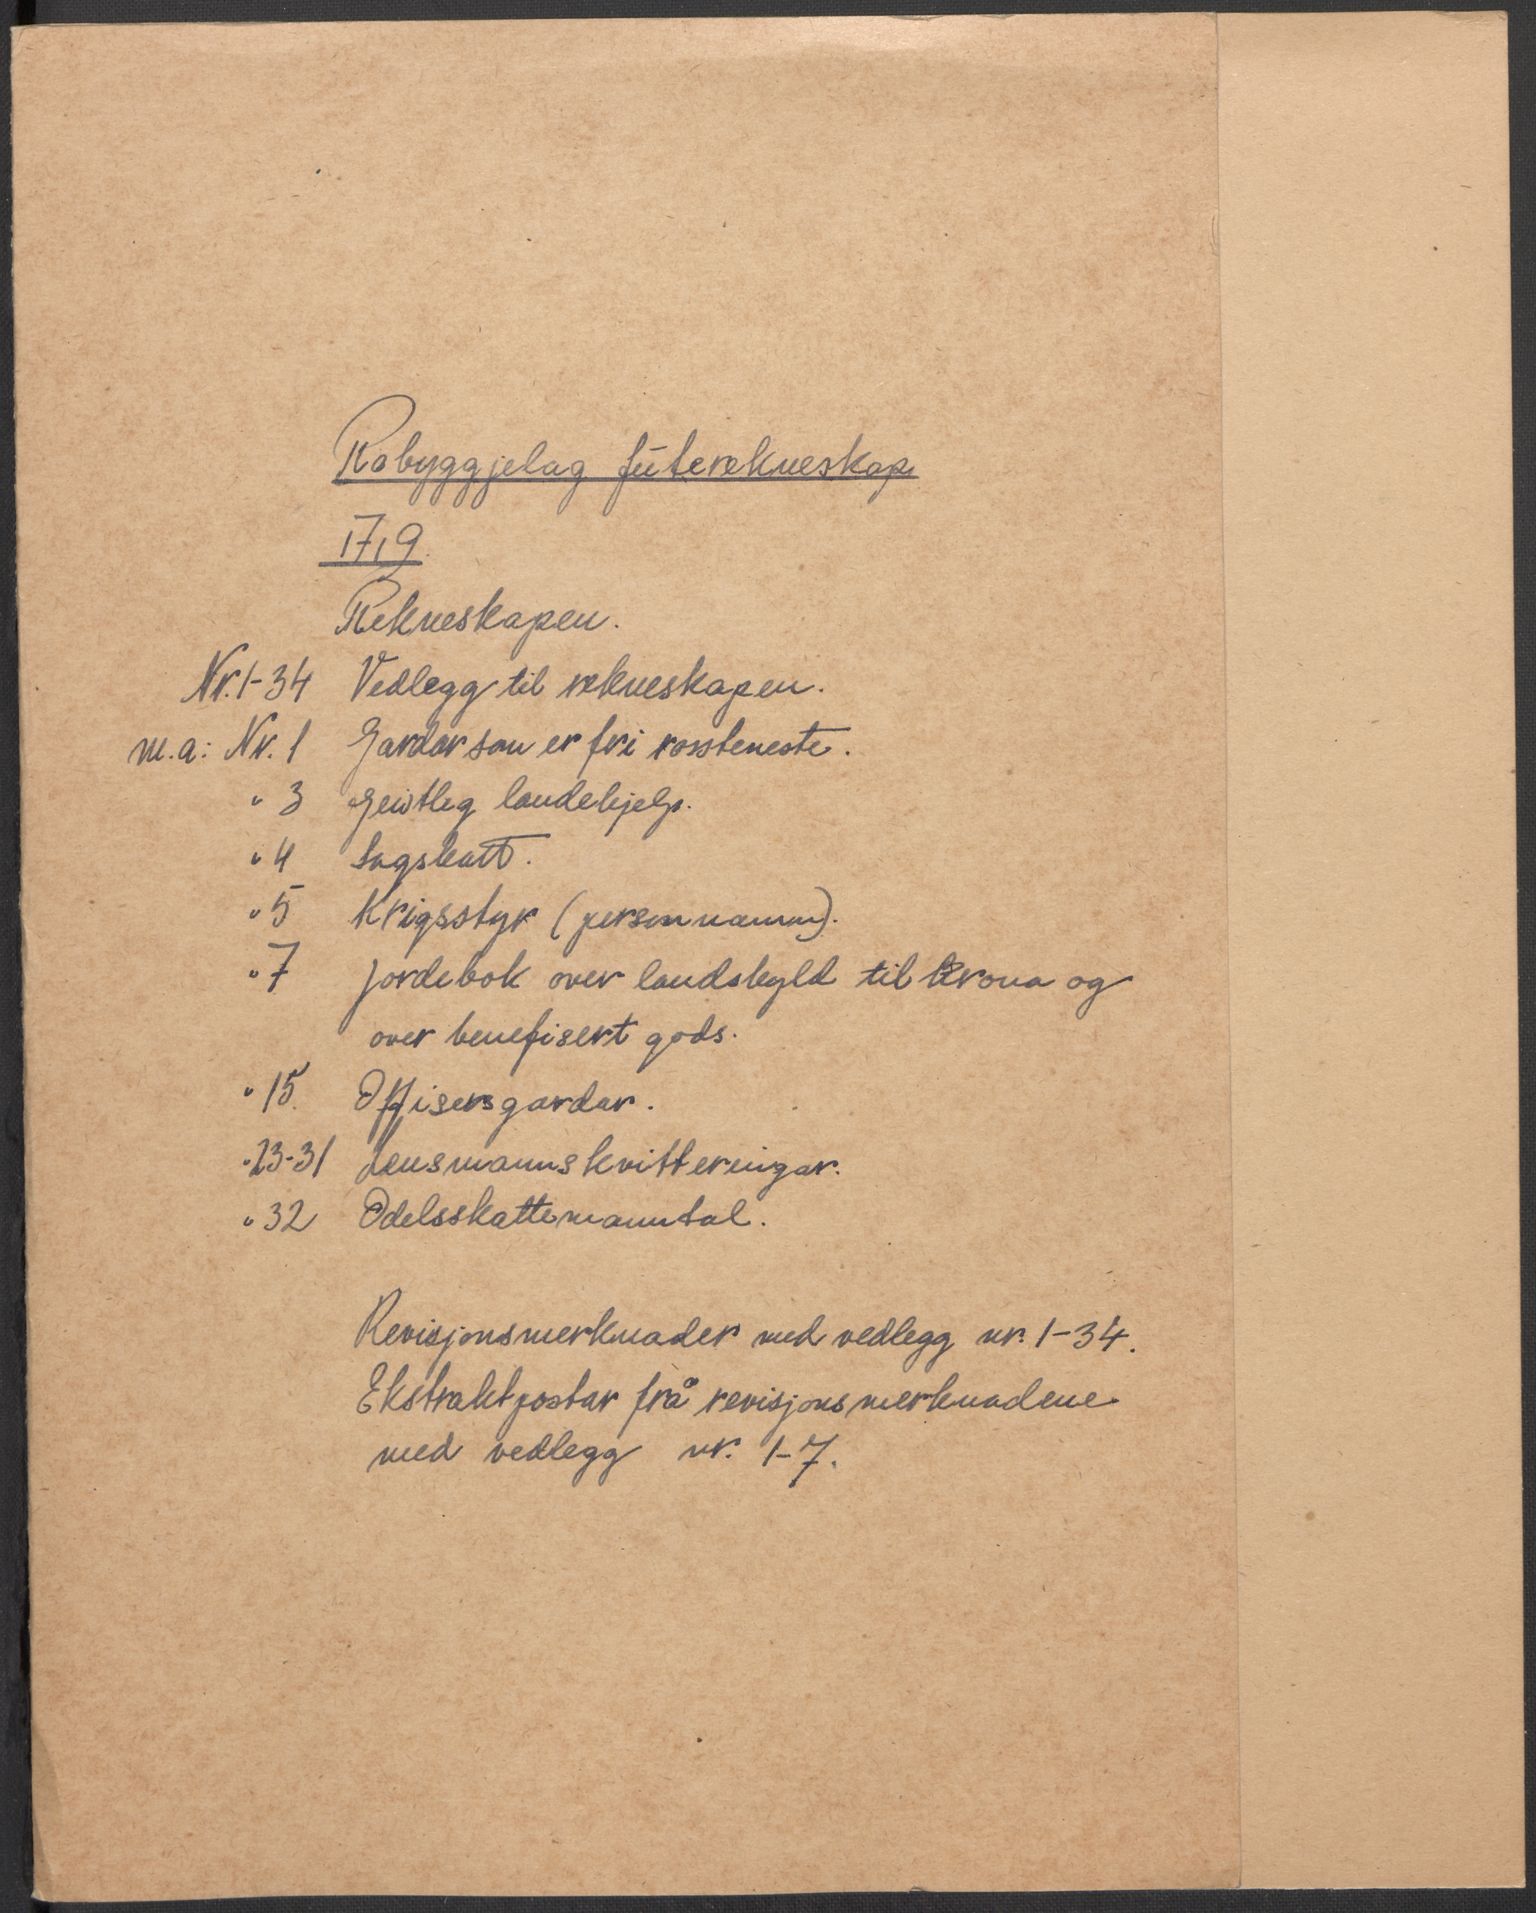 Råbyggjelag futerekneskap
1719.
Rekneskapen.
Nr. 1-34 Vedlegg til rekneskapen.
m.a: Nr. 1 Gardar som er fri rossteneste.
" 3 Geistleg landehjelp.
" 4 Sagskatt.
" 5 Krigsstyr (personnamn).
" 7 Jordebok over landskyld til krona og
over benefisert gods.
" 15. Offisersgardar.
" 23-31 Lensmannskvitteringar.
" 32 Odelsskattemanntal.
Revisjonsmerknader med vedlegg nr. 1-34.
Ekstraktpostar frå revisjonsmerknadene
med vedlegg nr. 1-7.